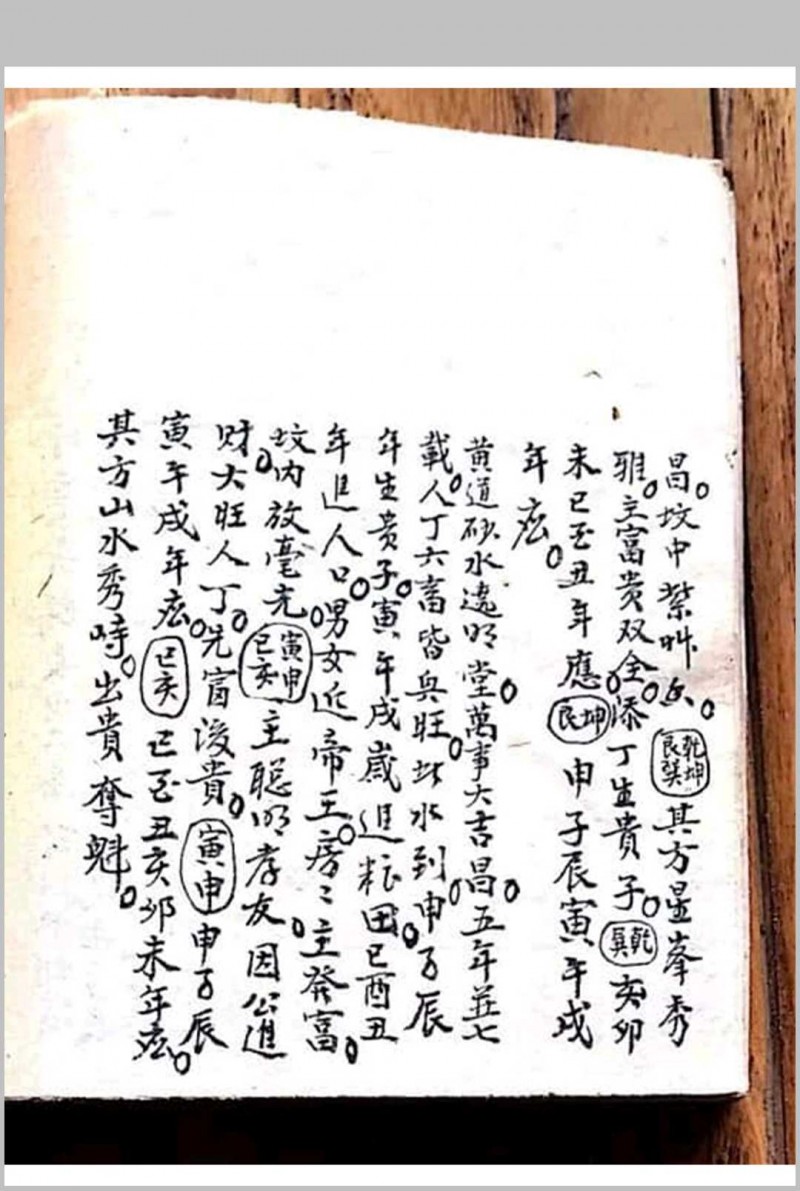 昌。坟中紫叫气。乾坤艮巽其方星峯秀
雅。主富贵双全。添丁生貴子。乾巽亥卯
未巳酉丑年應坤艮申子辰寅午戌
年应。
黄道砂水遶明堂。萬事大吉昌。五年並七
載。人丁六畜皆兴旺。坎水到。申子辰
年生贵子。寅午戌歲進粮田。巳酉丑
年進人口。男女近帝王。房〻主發富。
坟内放毫光。寅申巳亥主聰明孝友因公進
财大旺人丁。先富後貴。寅申申子辰
寅午戌年应。巳亥巳酉丑亥卯未年应。
其方山水秀峙。出貴奪魁。